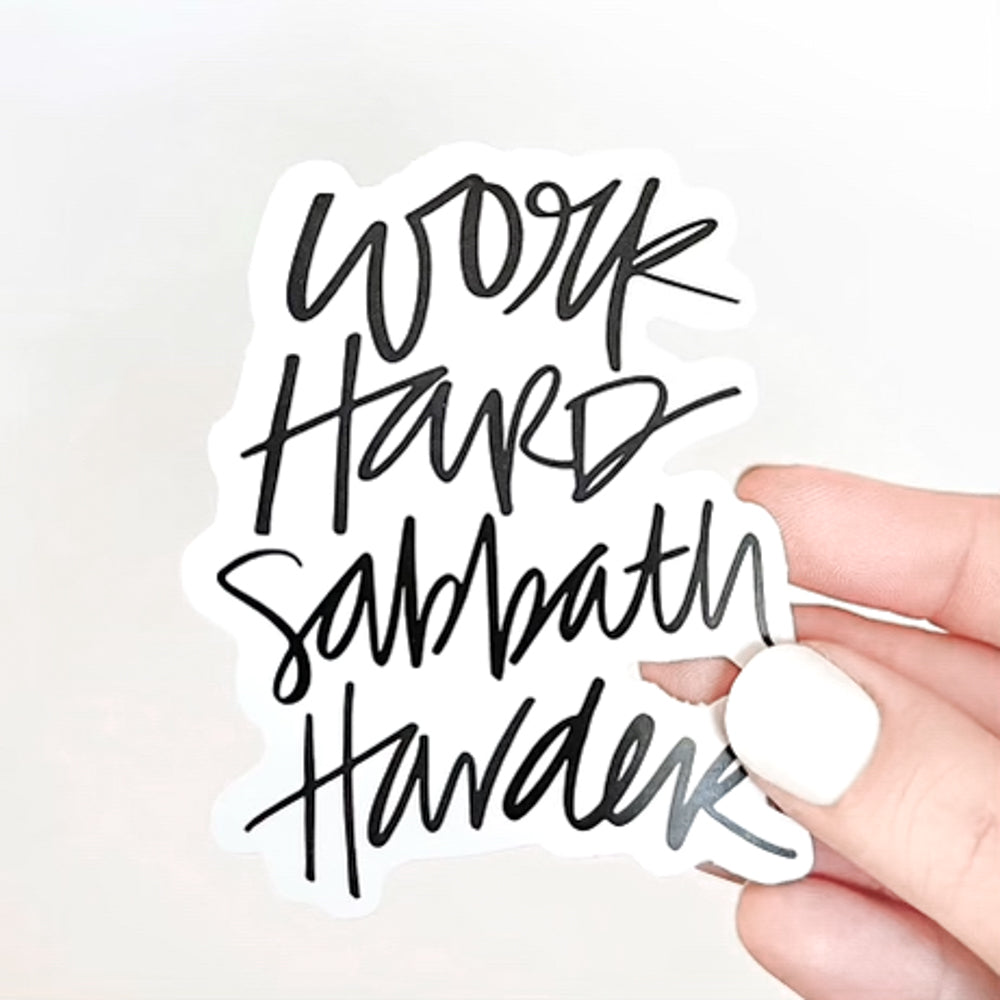 Work
Hard
Sabbath
Harder